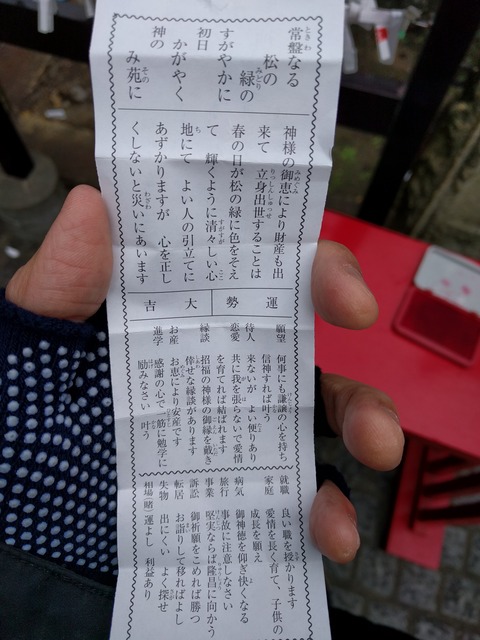 常盤なる
松の
緑の
すがやかに
初日
かがやく
神の
み苑に
神様の御恵により財産も出
来て 立身出世することは
春の日が松の緑に色をそえ
て 輝くように清々しい心
地にて よい人の引立てに
あずかりますが 心を正し
くしないと災いにあいます
運勢 大吉
願望 何事にも謙譲の心を持ち
信神すれば叶う
待人 来ないが よい便りあり
恋愛 共に我を張らないで愛情
を育てれば結ばれます
縁談 招福の神様の御縁を戴き
倖せな縁談があります
お産 お恵により安産です
進学 感謝の心で一筋に勉学に
励みなさい 叶う
就職 良い職を授かります
家庭 愛情を長く育て、子供の
成長を願え
病気 御神徳を仰ぎ快くなる
旅行 事故に注意しなさい
事業 堅実ならば隆昌に向かう
訴訟 御祈願をこめれば勝つ
転居 お詣りして移ればよし
失物 出にくい よく探せ
相場(賭) 運よし 利益あり